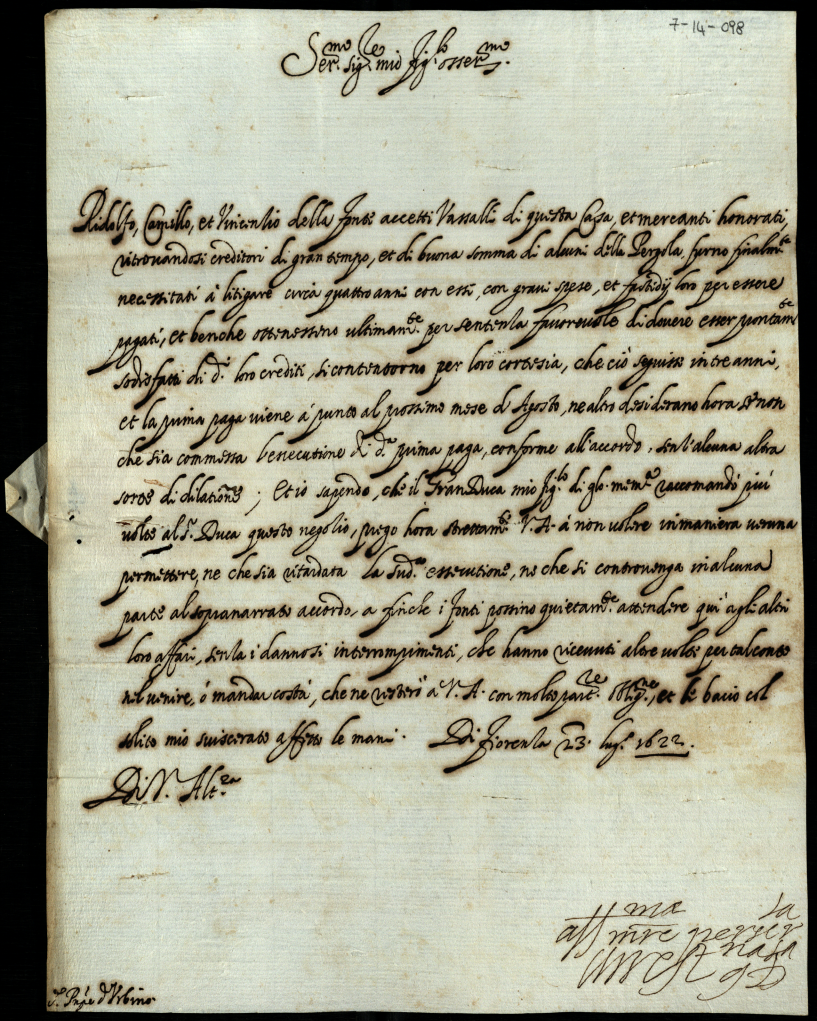 7-14-098
Ser.mo sig.re mio fig.lo osser.mo
Ridolfo, Camillo, et Vincentio della fonte accetti Vassalli di questa Casa, et mercanti honorati,
ritrovandosi creditori di gran tempo, et di buona somma di alcuni della Pergola, furno finalm.te
necessitati à litigare circa quattro anni con essi, con gravi spese, et fastidij loro per essere
pagati, et benche ottenessero ultimam.te per sentenza favorevole di dovere esser prontam.te
sodisfatti di d.i loro crediti, si contentorno per loro cortesia, che ciò seguisse in tre anni,
et la prima paga viene à punto al prossimo mese d'Agosto, ne altro desiderano hora se non
che sia commessa l'essecutione di d.a prima paga, conforme all'accordo, senz'alcuna altra
sorte di dilatione; Et io sapendo, che il Gran Duca mio fig.lo di glo. mem.a raccomandò più
volte al S.r Duca questo negotio, prego hora strettam.te V. A. à non volere in maniera veruna
permettere, ne che sia ritardata la sud.a essecutione, ne che si controvenga in alcuna
parte al sopranarrato accordo, a finche i fonti possino quietam.te attendere qui à gli altri
loro affari, senza i dannosi interrompimenti, che hanno ricevuti altre volte per tal conto
nel venire, ò mandar costà, che ne resterò a V. A. con molta par.re oblig.ne, et le bacio col
solito mio sviscerato affetto le mani. Di Fiorenza 23. lug.o 1622.
Di V. Alt.za
aff.ma
m.re per ser
la
S.r Pnpe d'Urbino